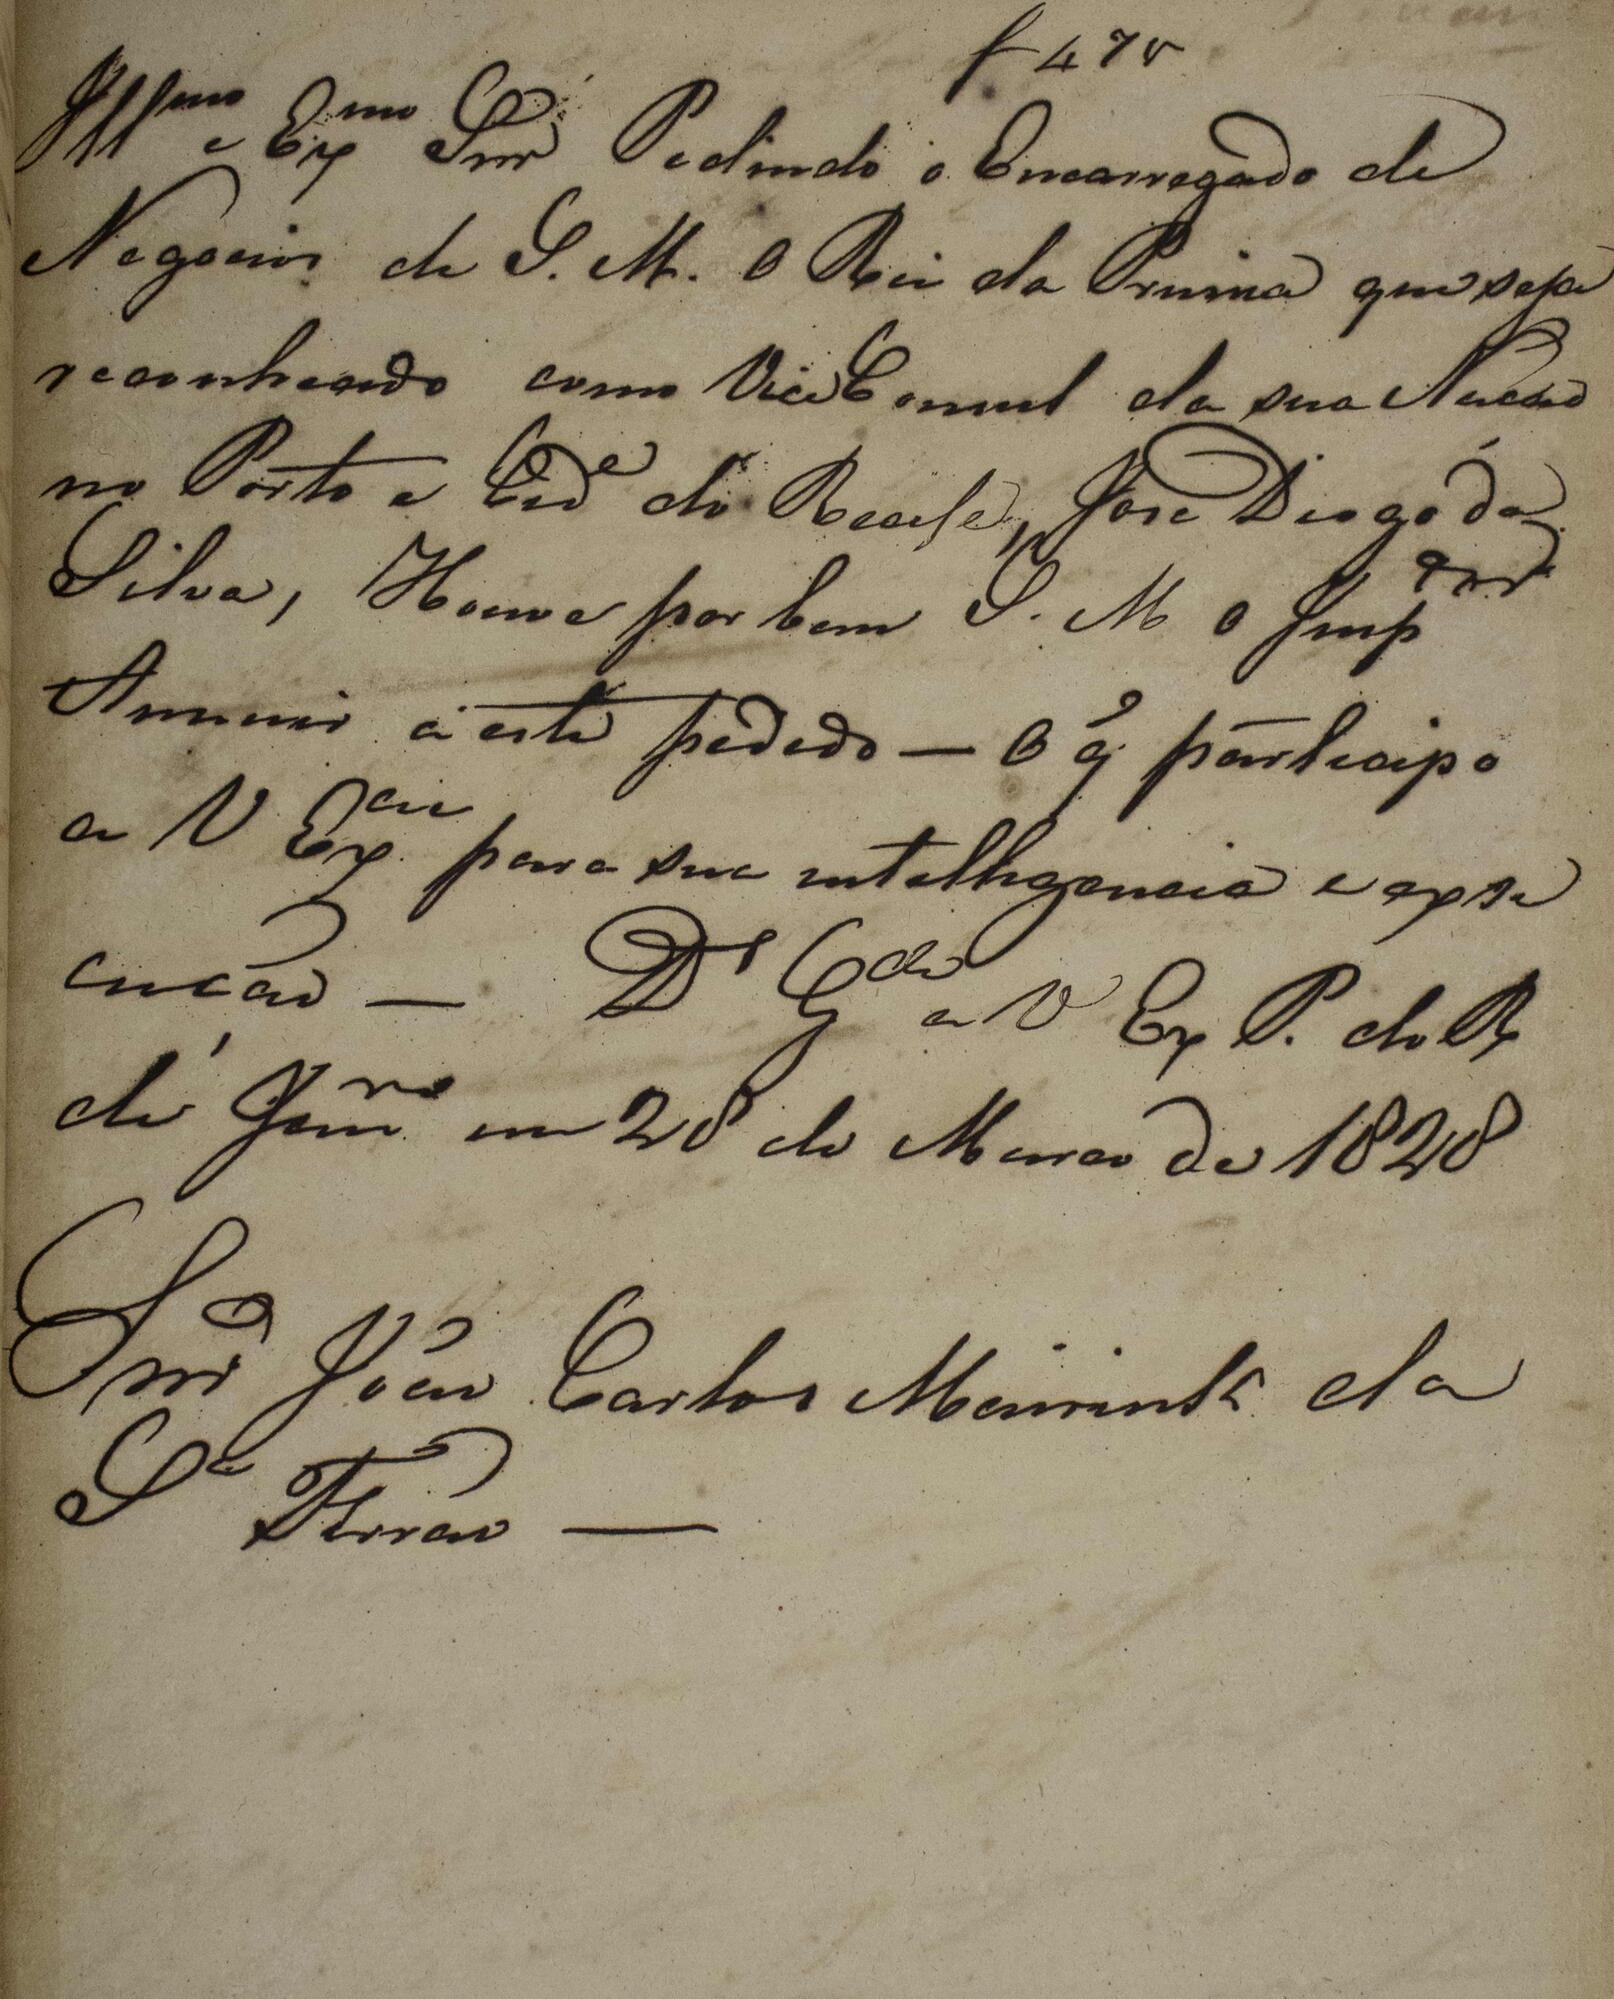 f 47 v
Illmo e Exmo Snr Pedindo o Encarregado de
Negocios de S. M. O Rei da Prussia que seja
reconhecido como Vice Consul da sua Nacão
no Porto e Cide do Recife, José Diogo da
Silva, Houve por bem S. M. O Imperor
Annuir á este pedido — O q̃ participo
a V Excia para sua intelligencia e exse
cucão — Ds Gde a V Ex P. do R
de Janro em 28 de Marco de 1828
Snr João Carlos Mairink da
Sa Ferrão —